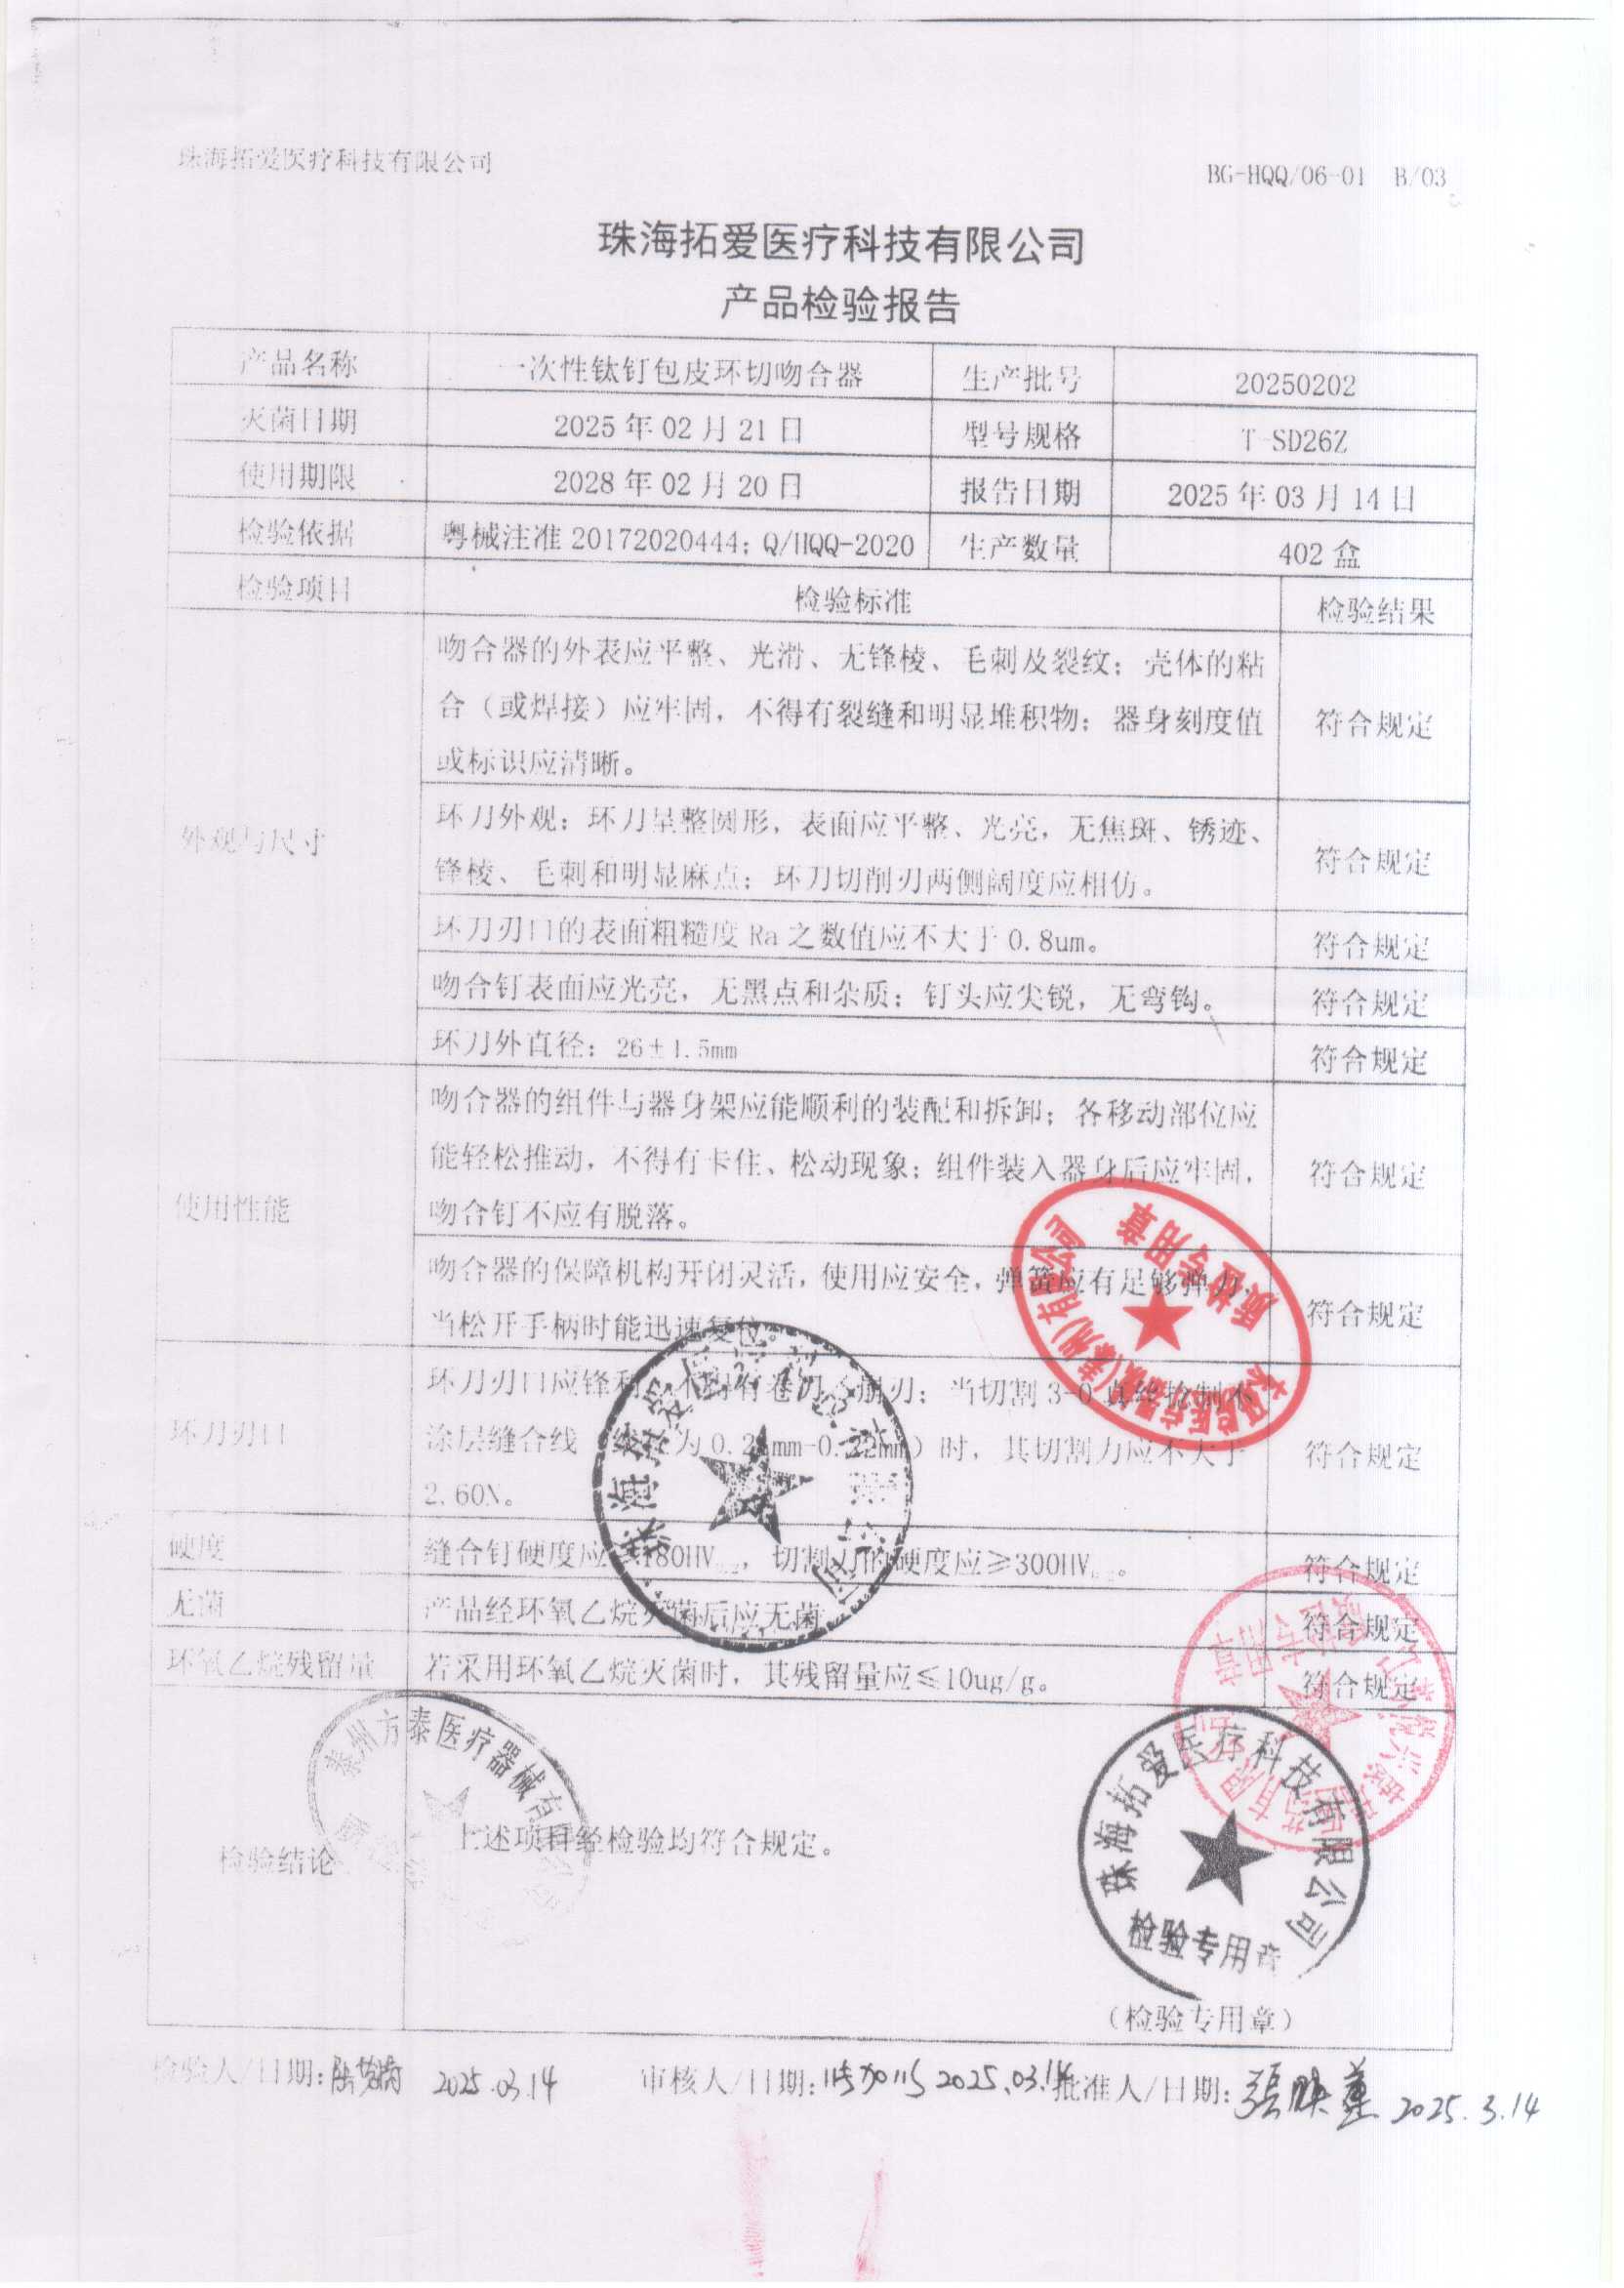 珠海拓爱医疗科技有限公司 BG-HQQ/06-01 B/03
珠海拓爱医疗科技有限公司
产品检验报告
产品名称 一次性钛钉包皮环切吻合器 生产批号 20250202
灭菌日期 2025年02月21日 型号规格 T-SD26Z
使用期限 2028年02月20日 报告日期 2025年03月14日
检验依据 粤械注准20172020444；Q/HQQ-2020 生产数量 402盒
检验项目 检验标准 检验结果
外观与尺寸
吻合器的外表应平整、光滑、无锋棱、毛刺及裂纹；壳体的粘
合（或焊接）应牢固，不得有裂缝和明显堆积物；器身刻度值
或标识应清晰。
符合规定
环刀外观：环刀呈整圆形，表面应平整、光亮，无焦斑、锈迹、
锋棱、毛刺和明显麻点；环刀切削刃两侧阔度应相仿。
符合规定
环刀刃口的表面粗糙度Ra之数值应不大于0.8um。 符合规定
吻合钉表面应光亮，无黑点和杂质；钉头应尖锐，无弯钩。 符合规定
环刀外直径：26±1.5mm 符合规定
使用性能
吻合器的组件与器身架应能顺利的装配和拆卸；各移动部位应
能轻松推动，不得有卡住、松动现象；组件装入器身后应牢固，
吻合钉不应有脱落。
符合规定
吻合器的保障机构开闭灵活，使用应安全，弹簧应有足够弹力，
当松开手柄时能迅速复位。
符合规定
环刀刃口
环刀刃口应锋利，不得有卷刃、崩刃；当切割3-0真丝捻制不
涂层缝合线 为0. mm-0.22mm）时，其切割力应不大于
2.60N。
符合规定
硬度 缝合钉硬度应 180HV ，切割刀的硬度应≥300HV 。 符合规定
无菌 产品经环氧乙烷灭菌后应无菌 符合规定
环氧乙烷残留量 若采用环氧乙烷灭菌时，其残留量应≤10ug/g。 符合规定
检验结论 上述项目经检验均符合规定。
泰州方泰医疗器械有
珠海拓爱医疗科技有限公司
检验专用章
质检专用章
（检验专用章）
检验人/日期： 2025.03.14 审核人/日期： 2025.03.14 批准人/日期： 2025.3.14